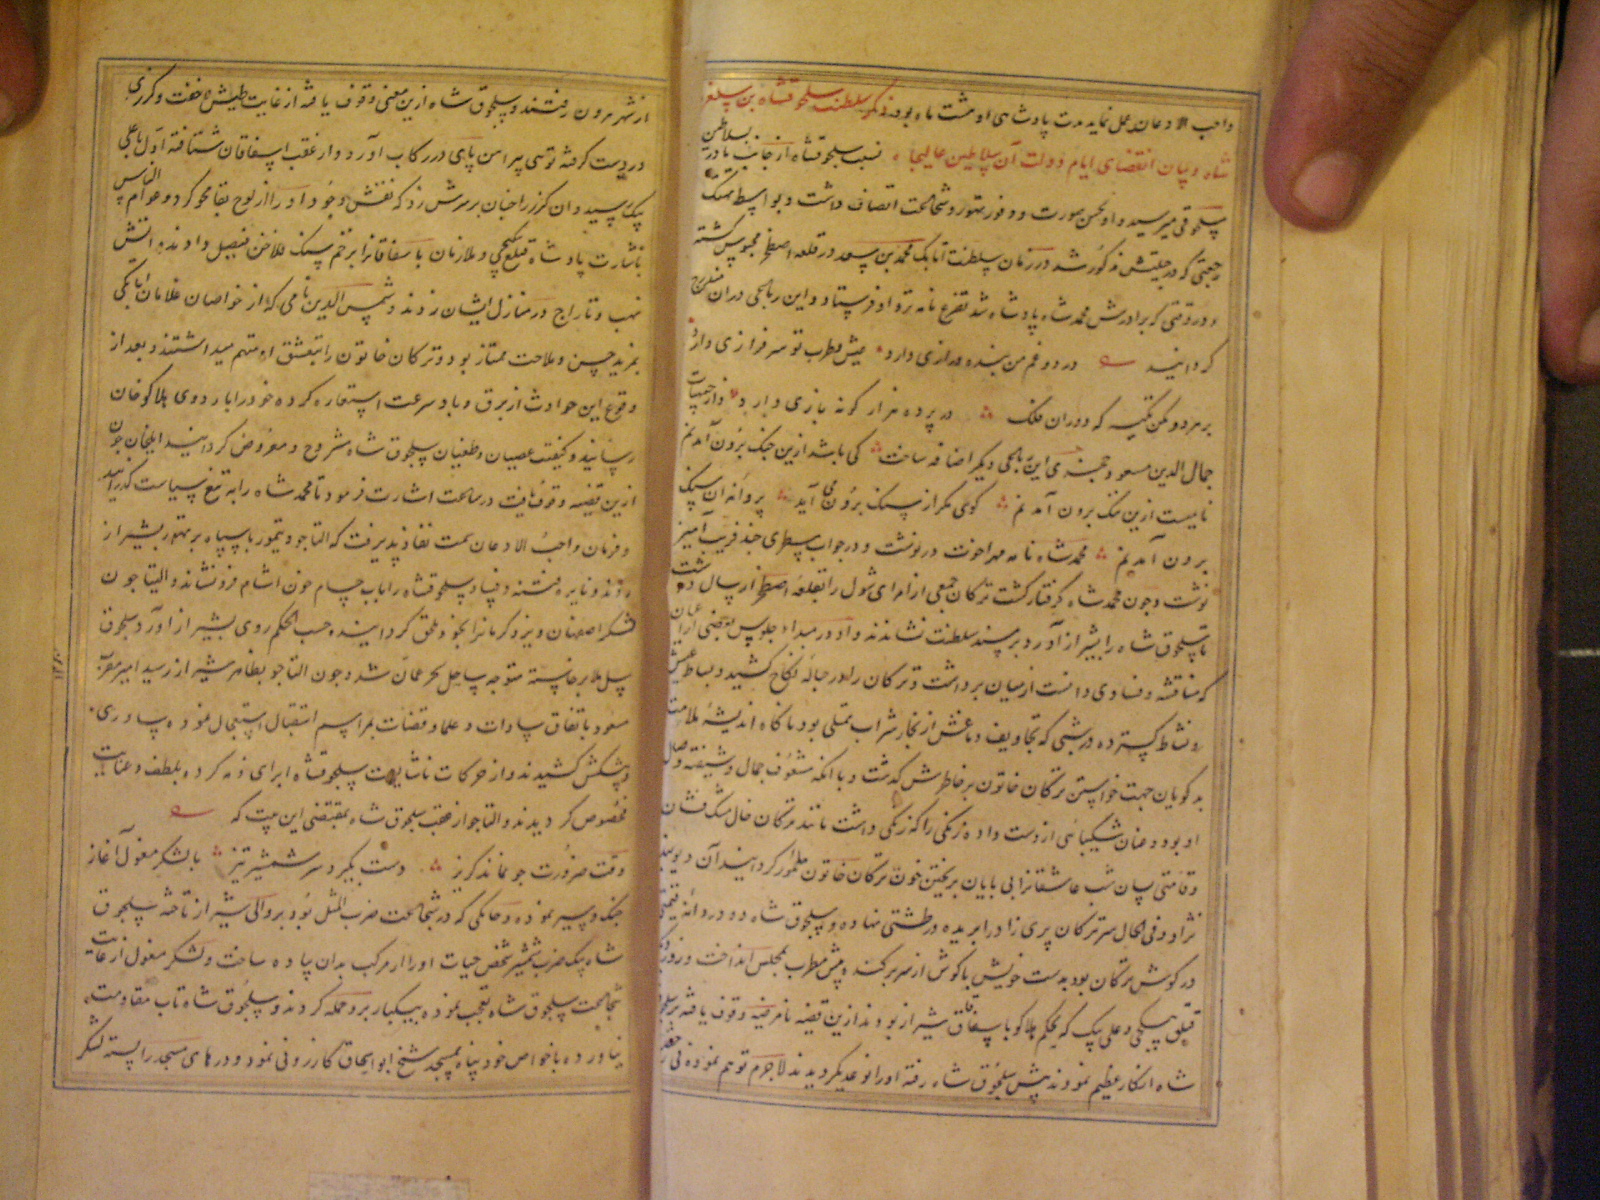 واجب الاذعان بعمل نماید مدت پادشاهی او هشت ماه بود ذکر سلطنت سلجوقشاه بن سلغر
شاه و بیان انقضای ایام دولت آن سلاطین عالیجاه نسب سلجوقشاه از جانب مادر بسلاطین
سلجوقی میرسید و او بحسن صورت و وفور تهور و شجاعت اتصاف داشت و بواسطه
که در جبلتش مذکور شد در زمان سلطنت اتابک محمد بن سعد در قلعه اصطخر محبوس گشته
و در وقتی که برادرش محمد شاه پادشاه شد تضرع نامه نزد او فرستاد و این رباعی در آن مندرج
گردانید در دو غم من بنده درازی دارد عیش و طرب تو سرفرازی دارد
بر هر دو مکن تکیه که دوران فلک در پرده هزار گونه بازی دارد و از
جمال الدین مسعود خجندی این رباعی دیگر اضافه ساخت کی باشد ازین جنک برون آمدنم
نامیست ازین ننک برون آمدنم گوئی مگر از سنک برون می آید پروانه ان سنک
برون آمدنم محمد شاه نامه مهر اخوت درنوشت و در جواب سطری چند فریب آمیز
نوشت و چون محمد شاه گرفتار گشت ترکان جمعی از امرای شول را بقلعه اصطخر ارسال داشت
تا سلجوق شاه را بشیراز آورد و بر مسند سلطنت نشاندند و او در مبداء جلوس بعضی از اعیان
که مناقشه و فسادی دانست از میان برداشت و ترکان را در حباله نکاح کشید و بساط عیش
و نشاط گسترده در شبی که تجاویف دماغش از بخار شراب ممتلی بود ناگاه اندیشه ملامت
بدگویان جهت خواستن ترکان خاتون بر خاطرش گذشت و با آنکه مشعوف جمال و شیفته وصل
او بود و عنان شکیبائی از دست داده زنگی را که زنگی داشت مانند ترکان خال مشک فشان
و قامتی بسان شب عاشقان بی پایان بریختن خون ترکان خاتون مامور گردانید آن
نژاد و فی الحال سر ترکان پری زاد را بریده در طشتی نهاده و سلجوق شاه دو دردانه قیمتی
در گوش ترکان بود بدست خویش با گوش از سر برکند و پیش مطرب مجلس انداخت و روز دیگر
قتلغ بیتکچی و علی بیک که بحکم هلاکو باسقاق شیراز بودند ازین قضیه نامرضیه وقوف یافته بر سلجوق
شاه انکار عظیم نمودند پیش سلجوق شاه رفته او را نوعدیگر دیدند لاجرم توهم نموده
از شهر بیرون رفتند و سلجوق شاه ازین معنی وقوف یافته از غایت طیش و خفت و گرزی
در دست گرفته توسی پیراهن پای در رکاب آورد و از عقب باسقاقان شتافته اول با علی
بیک رسید و ان گرز را چنان بر سرش زد که نقش وجود او را از لوح بقا محو کرد و عوام الناس
باشارت پادشاه قتلغ بیتکچی و ملازمان باسقاقانرا بزخم سنک فلاخن فیصل دادند و آتش
نهب و تاراج در منازل ایشان زدند و شمس الدین نامی که از خواصان غلامان اتابکی
بمزید حسن و ملاحت ممتاز بود و ترکان خاتون را بتعشق او متهم میداشتند و بعد از
وقوع این حوادث از برق و باد سرعت استعاره کرده خود را باردوی هلاکو خان
رسانید و کیفیت عصیان و طغیان سلجوق شاه مشروح و معروض گردانید ایلخان چون
ازین قضیه وقوف یافت در ساعت اشارت فرمود تا محمد شاه را به تیغ سیاست گذرانید
و فرمان واجب الاذعان سمت نفاذ پذیرفت که التاجو و تیمور با سپاه بر تهور بشیراز
روند و نایره فتنه و فساد سلجوقشاه را باب حسام خون آشام فرونشاند و التاجو ن
لشکر اصفهان و یزد و کرمانرا بخود ملحق گردانیده حسب الحکم روی بشیراز آورد و سلجوق
متوجه ساحل بحر عمان شد و چون التاجو بظاهر شیراز رسید امیر مقرب
مسعود باتفاق سادات و علما و قضات بمراسم استقبال استعجال نموده
و پیشکش کشیدند و از حرکات ناشایست سلجوقشاه ابرای ذمه کرده بلطف و عنایت
مخصوص گردیدند و التاجو از عقب سلجوق شاه بمقتضی این بیت که
وقت ضرورت جو نماند گریز دست بگیرد سر شمشیر تیز با لشکر مغول آغاز
جنگ و ستیز نموده و که در شجاعت ضرب المثل بود و بر والی شیراز تاخته سلجوق
شاه بیک ضرب شمشیر شخص حیات او را از مرکب بدن پیاده ساخت و لشکر مغول از غایت
شجاعت سلجوق شاه تعجب نموده بیکبار برو حمله کردند و سلجوق شاه تاب مقاومت
نیاورده با خواص خود پناه بمسجد شیخ ابو اسحاق کازرونی نمود و درهای مسجد را بسته لشکر